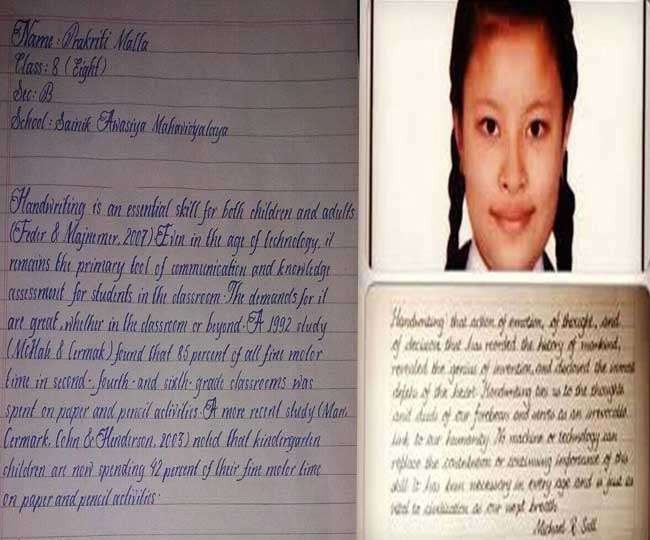 Name : Prakriti Malla
Class : 8 (Eight)
Sec : B
School : Sainik Awasiya Mahavidyalaya
Handwriting is an essential skill for both children and adults
(Feder & Majnemer, 2007). Even in the age of technology, it
remains the primary tool of communication and knowledge
assessment for students in the classroom. The demands for it
are great, whether in the classroom or beyond. A 1992 study
(McHale & Cermak) found that 85 percent of all fine motor
time in second-, fourth- and sixth- grade classrooms was
spent on paper and pencil activities. A more recent study (Marr,
Cermark, Cohn & Henderson, 2003) noted that kindergarten
children are now spending 42 percent of their fine motor time
on paper and pencil activities.
Handwriting that action of emotion, of thought, and
of decision that has recorded the history of mankind,
revealed the genius of invention, and disclosed the inmost
depths of the heart. Handwriting ties us to the thoughts
and deeds of our forebears and serves as an irrevocable
link to our humanity. No machine or technology can
replace the contribution or continuing importance of this
skill. It has been necessary in every age and is just as
vital to civilization as our next breath.
Michael R. Sull